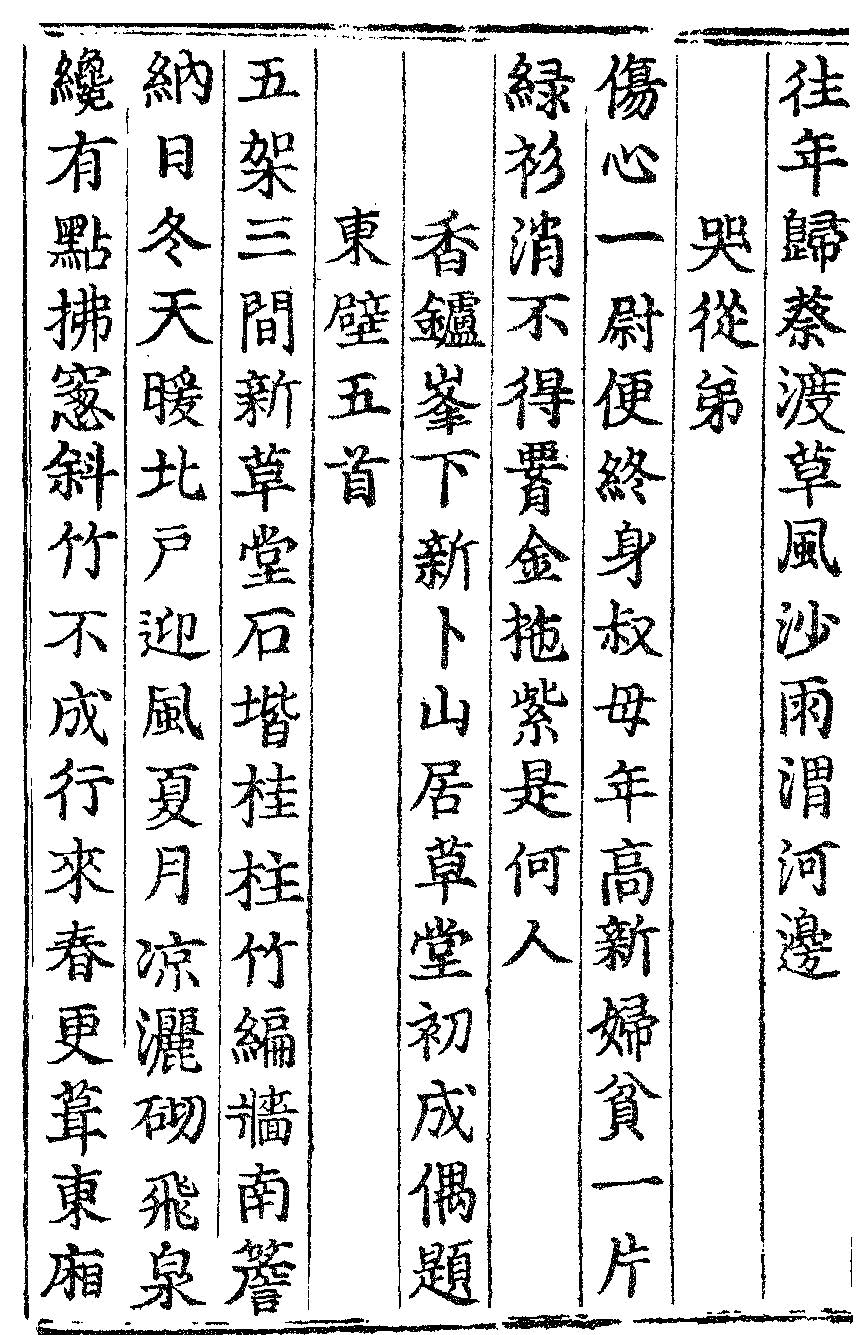 往年歸蔡渡草風沙雨渭河邊
哭從弟
傷心一尉便終身叔母年高新婦貧一片
緑衫消不得腰金拖紫是何人
香鑪峯下新卜山居草堂初成偶題
東壁五首
五架三間新草堂石堦桂柱竹編牆南簷
納日冬天暖北戸迎風夏月凉灑砌飛泉
纔有點拂窻斜竹不成行來春更葺東廂